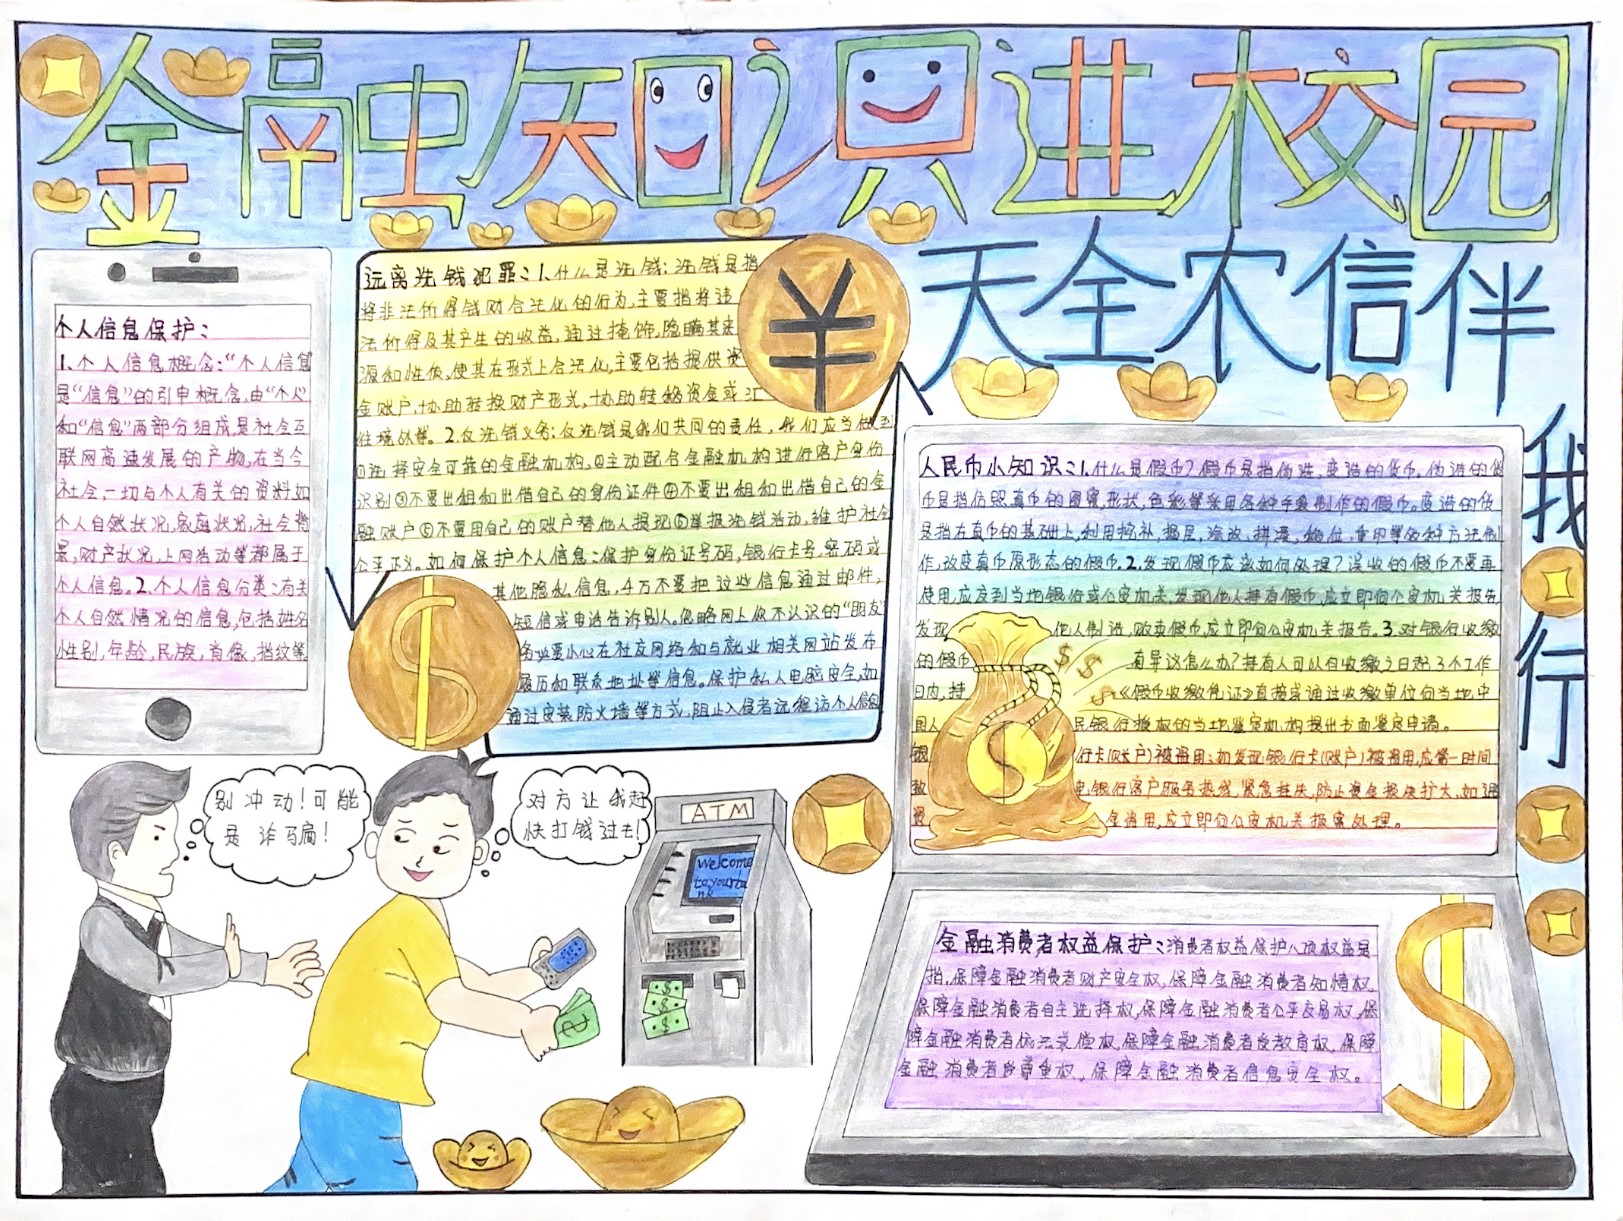 金融知识进校园
天全农信伴
我
行
个人信息保护：
1.个人信息概念：“个人信息
是“信息”的引申概念，由“个人”
和“信息”两部分组成，是社会互
联网高速发展的产物，在当今
社会一切与个人有关的资料如
个人自然状况，家庭状况，社会背
景，财产状况，上网活动等都属于
个人信息。2.个人信息分类：有关
个人自然情况的信息，包括姓名
性别，年龄，民族，肖像，指纹等
远离洗钱犯罪：1.什么是洗钱：洗钱是指
将非法所得钱财合法化的行为。主要指将违
法所得及其产生的收益，通过掩饰，隐瞒其来
源和性质，使其在形式上合法化，主要包括提供资
金账户，协助转换财产形式，协助转移资金或汇
往境外等。2.反洗钱义务：反洗钱是我们共同的责任，我们应当做到
①选择安全可靠的金融机构，②主动配合金融机构进行客户身份
识别③不要出租和出借自己的身份证件④不要出租和出借自己的金
融账户⑤不要用自己的账户替他人提现⑥举报洗钱活动，维护社会
公平正义。如何保护个人信息：保护身份证号码，银行卡号，密码或
其他隐私信息，千万不要把这些信息通过邮件，
短信或电话告诉别人。忽略网上你不认识的“朋友”
务必要小心在社交网络和与就业相关网站发布
履历和联系地址等信息。保护私人电脑安全，如
通过安装防火墙等方式，阻止入侵者远程访个人信息
人民币小知识：1.什么是假币？假币是指伪造，变造的货币。伪造的货
币是指仿照真币的图案，形状，色彩等采用各种手段制作的假币。变造的货
是指在真币的基础上，利用挖补，揭层，涂改，拼凑，移位，重印等多种方法制
作，改变真币原形态的假币。2.发现假币应该如何处理？误收的假币不要再
使用，应交到当地银行或公安机关，发现他人持有假币，应立即向公安机关报告
发现 他人制造，贩卖假币，应立即向公安机关报告。3.对银行收缴
的假币 有异议怎么办？持有人可以自收缴之日起3个工作
日内，持 《假币收缴凭证》直接或通过收缴单位向当地中
国人 民银行授权的当地鉴定机构提出书面鉴定申请。
银 行卡(账户)被盗用：如发现银行卡(账户)被盗用，应第一时间
致 电银行客户服务热线，紧急挂失，防止资金损失扩大，如遇
遇 金消用，应立即向公安机关报案处理。
别冲动！可能
是诈骗！
对方让我赶
快打钱过去！
ATM
Welcome
to your ba
nk
金融消费者权益保护：消费者权益保护八项权益是
指，保障金融消费者财产安全权，保障金融消费者知情权，
保障金融消费者自主选择权，保障金融消费者公平交易权，保
障金融消费者依法求偿权，保障金融消费者受教育权，保障
金融消费者受尊重权，保障金融消费者信息安全权。